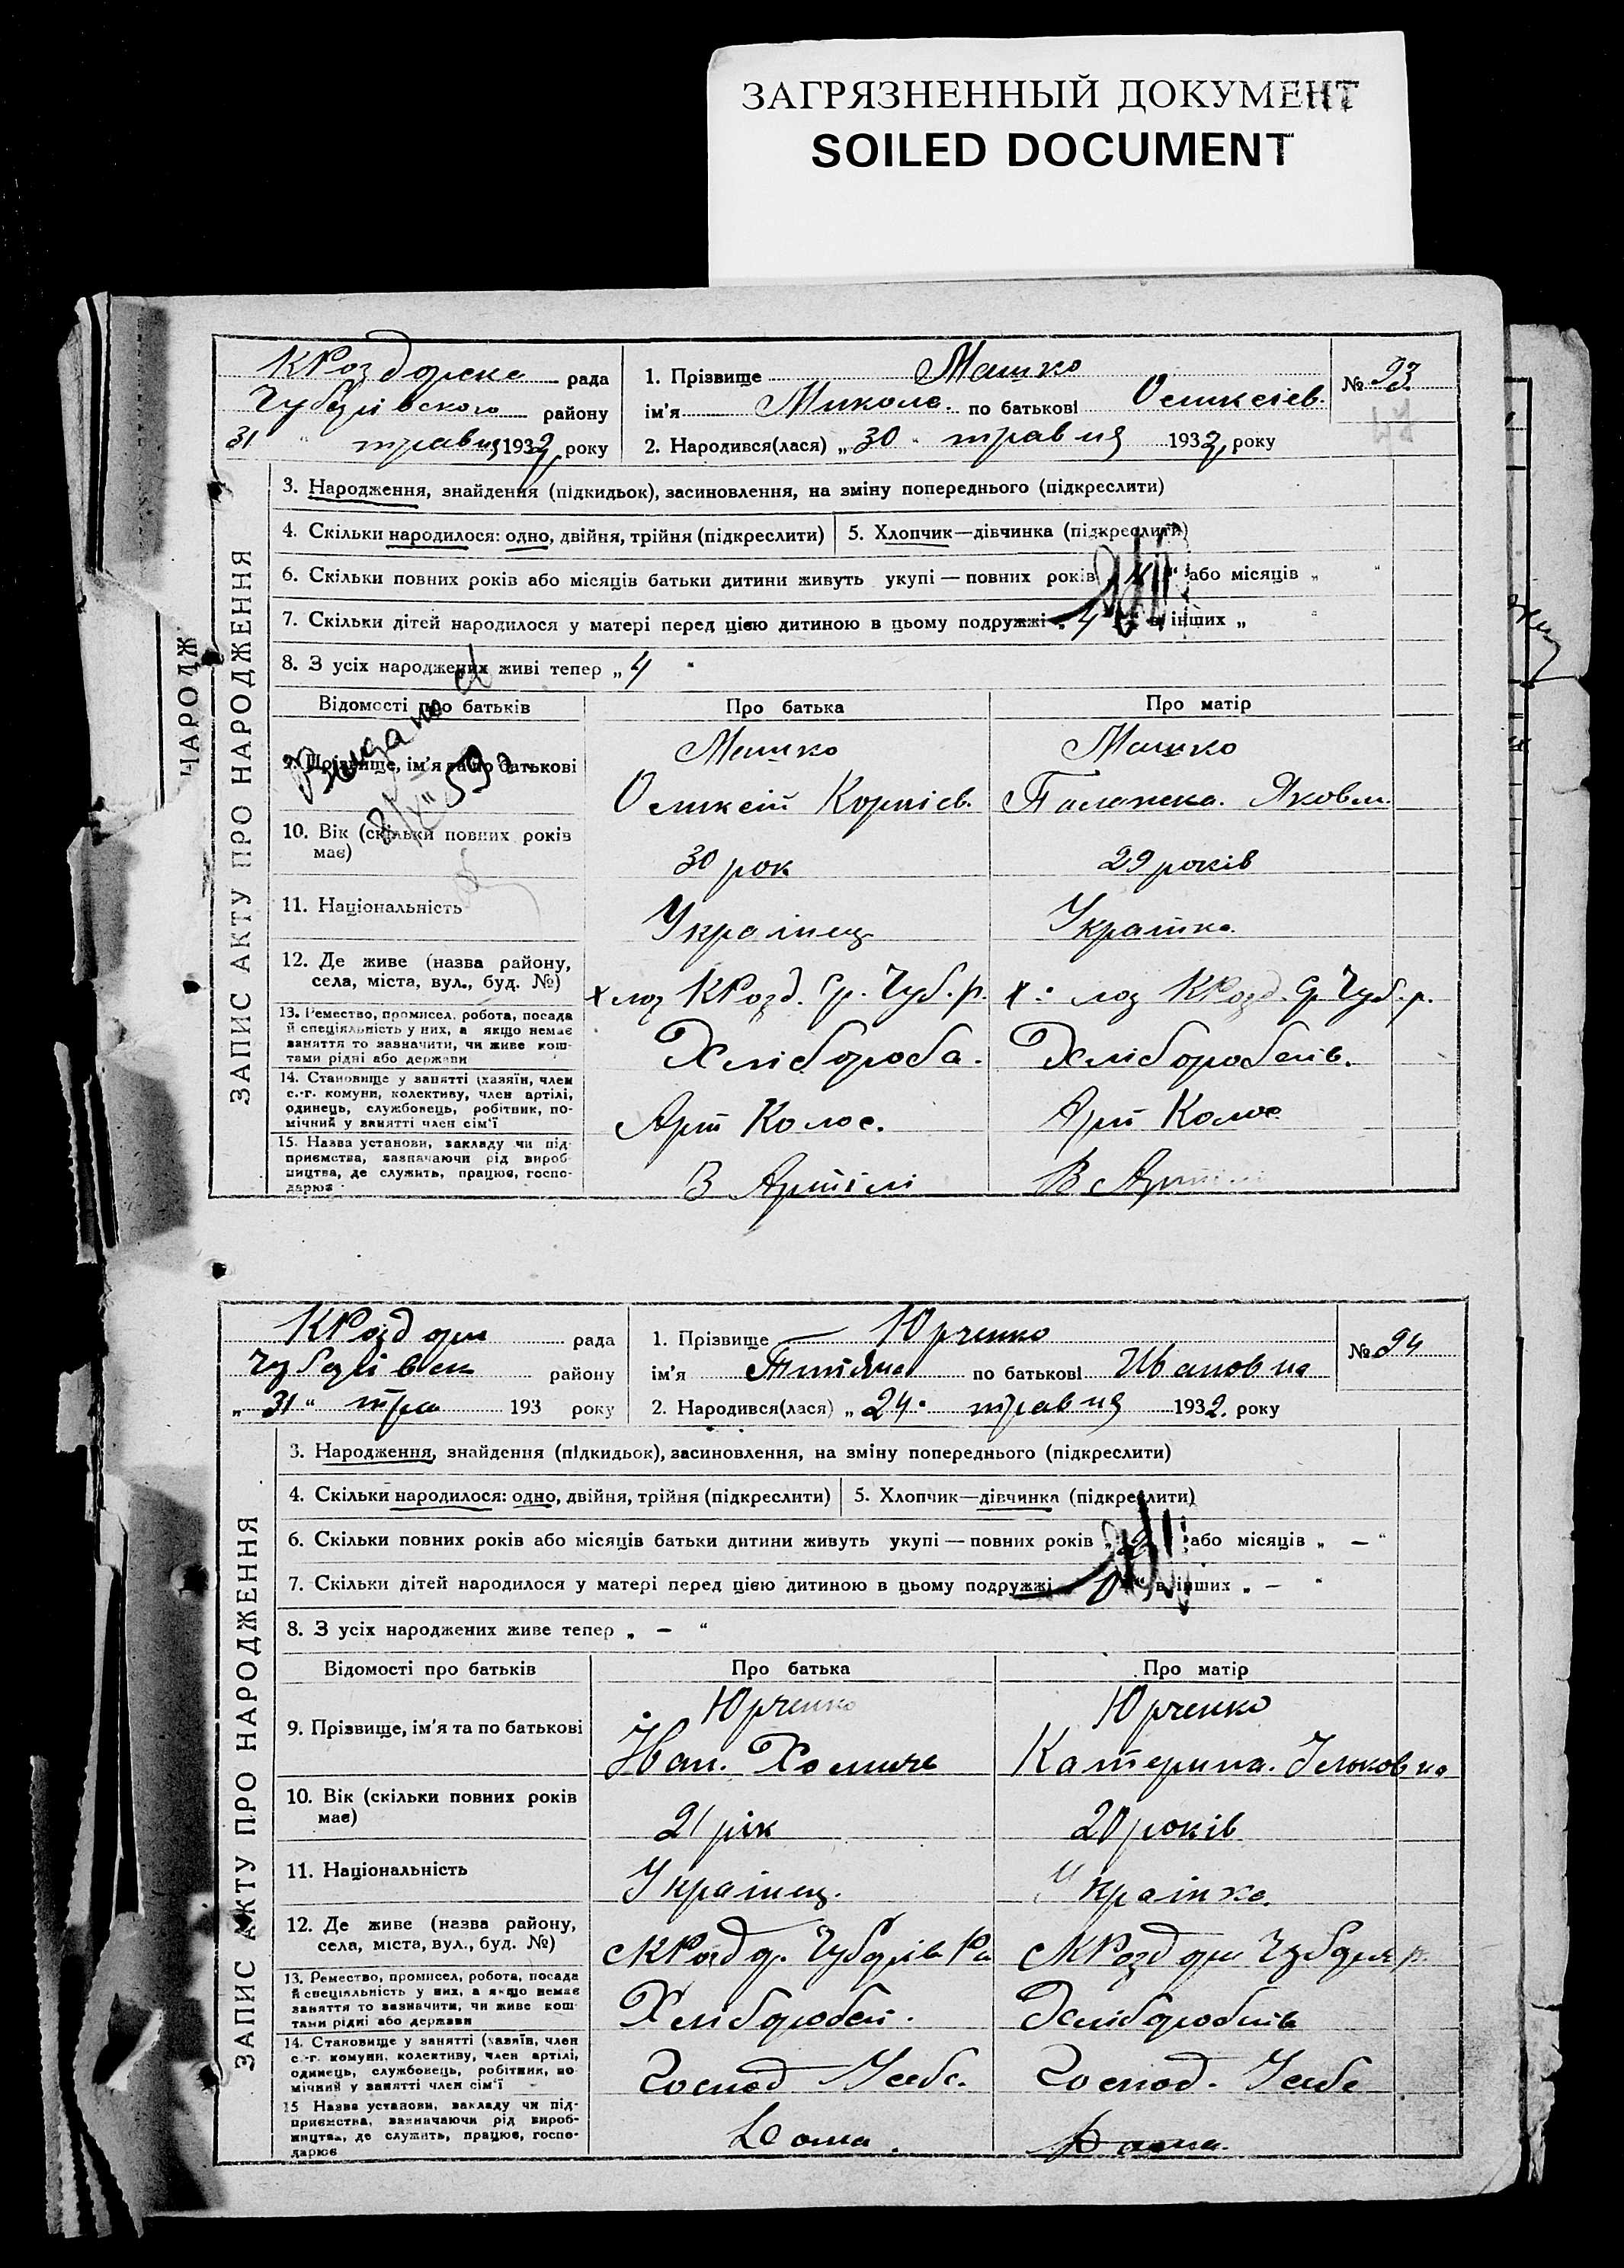 ЗАГРЯЗНЕННЫЙ ДОКУМЕНТ
SOILED DOCUMENT
рада
1. Прізвище Машко
№ 93
Чубарівського району
ім'я Микола. по батькові Олексієв.
31 " травня 1932 року
2. Народився(лася) „30" травня 1932 року
ЗАПИС АКТУ ПРО НАРОДЖЕННЯ
3. Народження, знайдення (підкидьок), засиновлення, на зміну попереднього (підкреслити)
4. Скільки народилося: одно, двійня, трійня (підкреслити)
5. Хлопчик—дівчинка (підкреслити)
6. Скільки повних років або місяців батьки дитини живуть укупі — повних років або місяців „ "
7. Скільки дітей народилося у матері перед цією дитиною в цьому подружжі „4" в інших „ "
8. З усіх народжених живі тепер „4 "
Відомості про батьків
Про батька
Про матір
9. Прізвище, ім'я та по батькові
Машко
Машко
Олексій Корнієв.
Палажка. Яковл.
10. Вік (скільки повних років має)
30 рок
29 років
11. Національність
Українец
Українка
12. Де живе (назва району, села, міста, вул., буд. №)
КРозд. Чуб. р.
КРозд. Чуб. р.
13. Ремество, промисел, робота, посада й спеціяльність у них, а якщо немає заняття то зазначити, чи живе коштами рідні або держави
Хлібороба.
14. Становище у занятті (хазяїн, член с.-г. комуни, колективу, член артілі, одинець, службовець, робітник, помічний у занятті член сім'ї
Арт Колос.
Арт Колос
15. Назва установи, закладу чи підприємства, зазначаючи рід виробництва, де служить, працює, господарює
В Артілі
В Артілі
КРоздори рада
1. Прізвище Юрченко
№ 94
району
ім'я Титяна по батькові Ивановна
„ 31 " тра 193 року
2. Народився(лася) „24" травня 1932. року
ЗАПИС АКТУ ПРО НАРОДЖЕННЯ
3. Народження, знайдення (підкидьок), засиновлення, на зміну попереднього (підкреслити)
4. Скільки народилося: одно, двійня, трійня (підкреслити)
5. Хлопчик—дівчинка (підкреслити)
6. Скільки повних років або місяців батьки дитини живуть укупі — повних років або місяців „ — "
7. Скільки дітей народилося у матері перед цією дитиною в цьому подружжі в інших „ — "
8. З усіх народжених живе тепер „ — "
Відомості про батьків
Про батька
Про матір
9. Прізвище, ім'я та по батькові
Юрченко
Юрченко
Иван. Хомич
Катерина. Ільковна
10. Вік (скільки повних років має)
21 рік
20 років
11. Національність
Українец.
Українка.
12. Де живе (назва району, села, міста, вул., буд. №)
13. Ремество, промисел, робота, посада й спеціяльність у них, а якщо немає заняття то зазначити, чи живе коштами рідні або держави
14. Становище у занятті (хазяїн, член с.-г. комуни, колективу, член артілі, одинець, службовець, робітник, помічний у занятті член сім'ї
Господ
Господ.
15 Назва установи, закладу чи підприємства, зазначаючи рід виробництва, де служить, працює, господарює
Дома.
Дома.